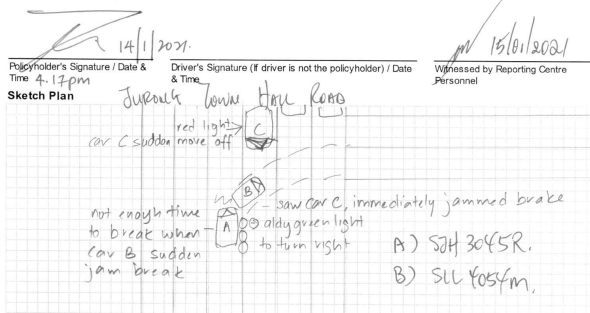 14/1/2021.
15/01/2021
Policyholder's Signature / Date &
Time 4.17pm
Driver's Signature (If driver is not the policyholder) / Date
& Time
Witnessed by Reporting Centre
Personnel
Sketch Plan
JURONG TOWN HALL ROAD
red light
C
car C sudden move off
B
saw car C, immediately jammed brake
not enough time
to break when
car B sudden
jam break
A
aldy green light
to turn right
A) SJH 3045R.
B) SLL 4054M.